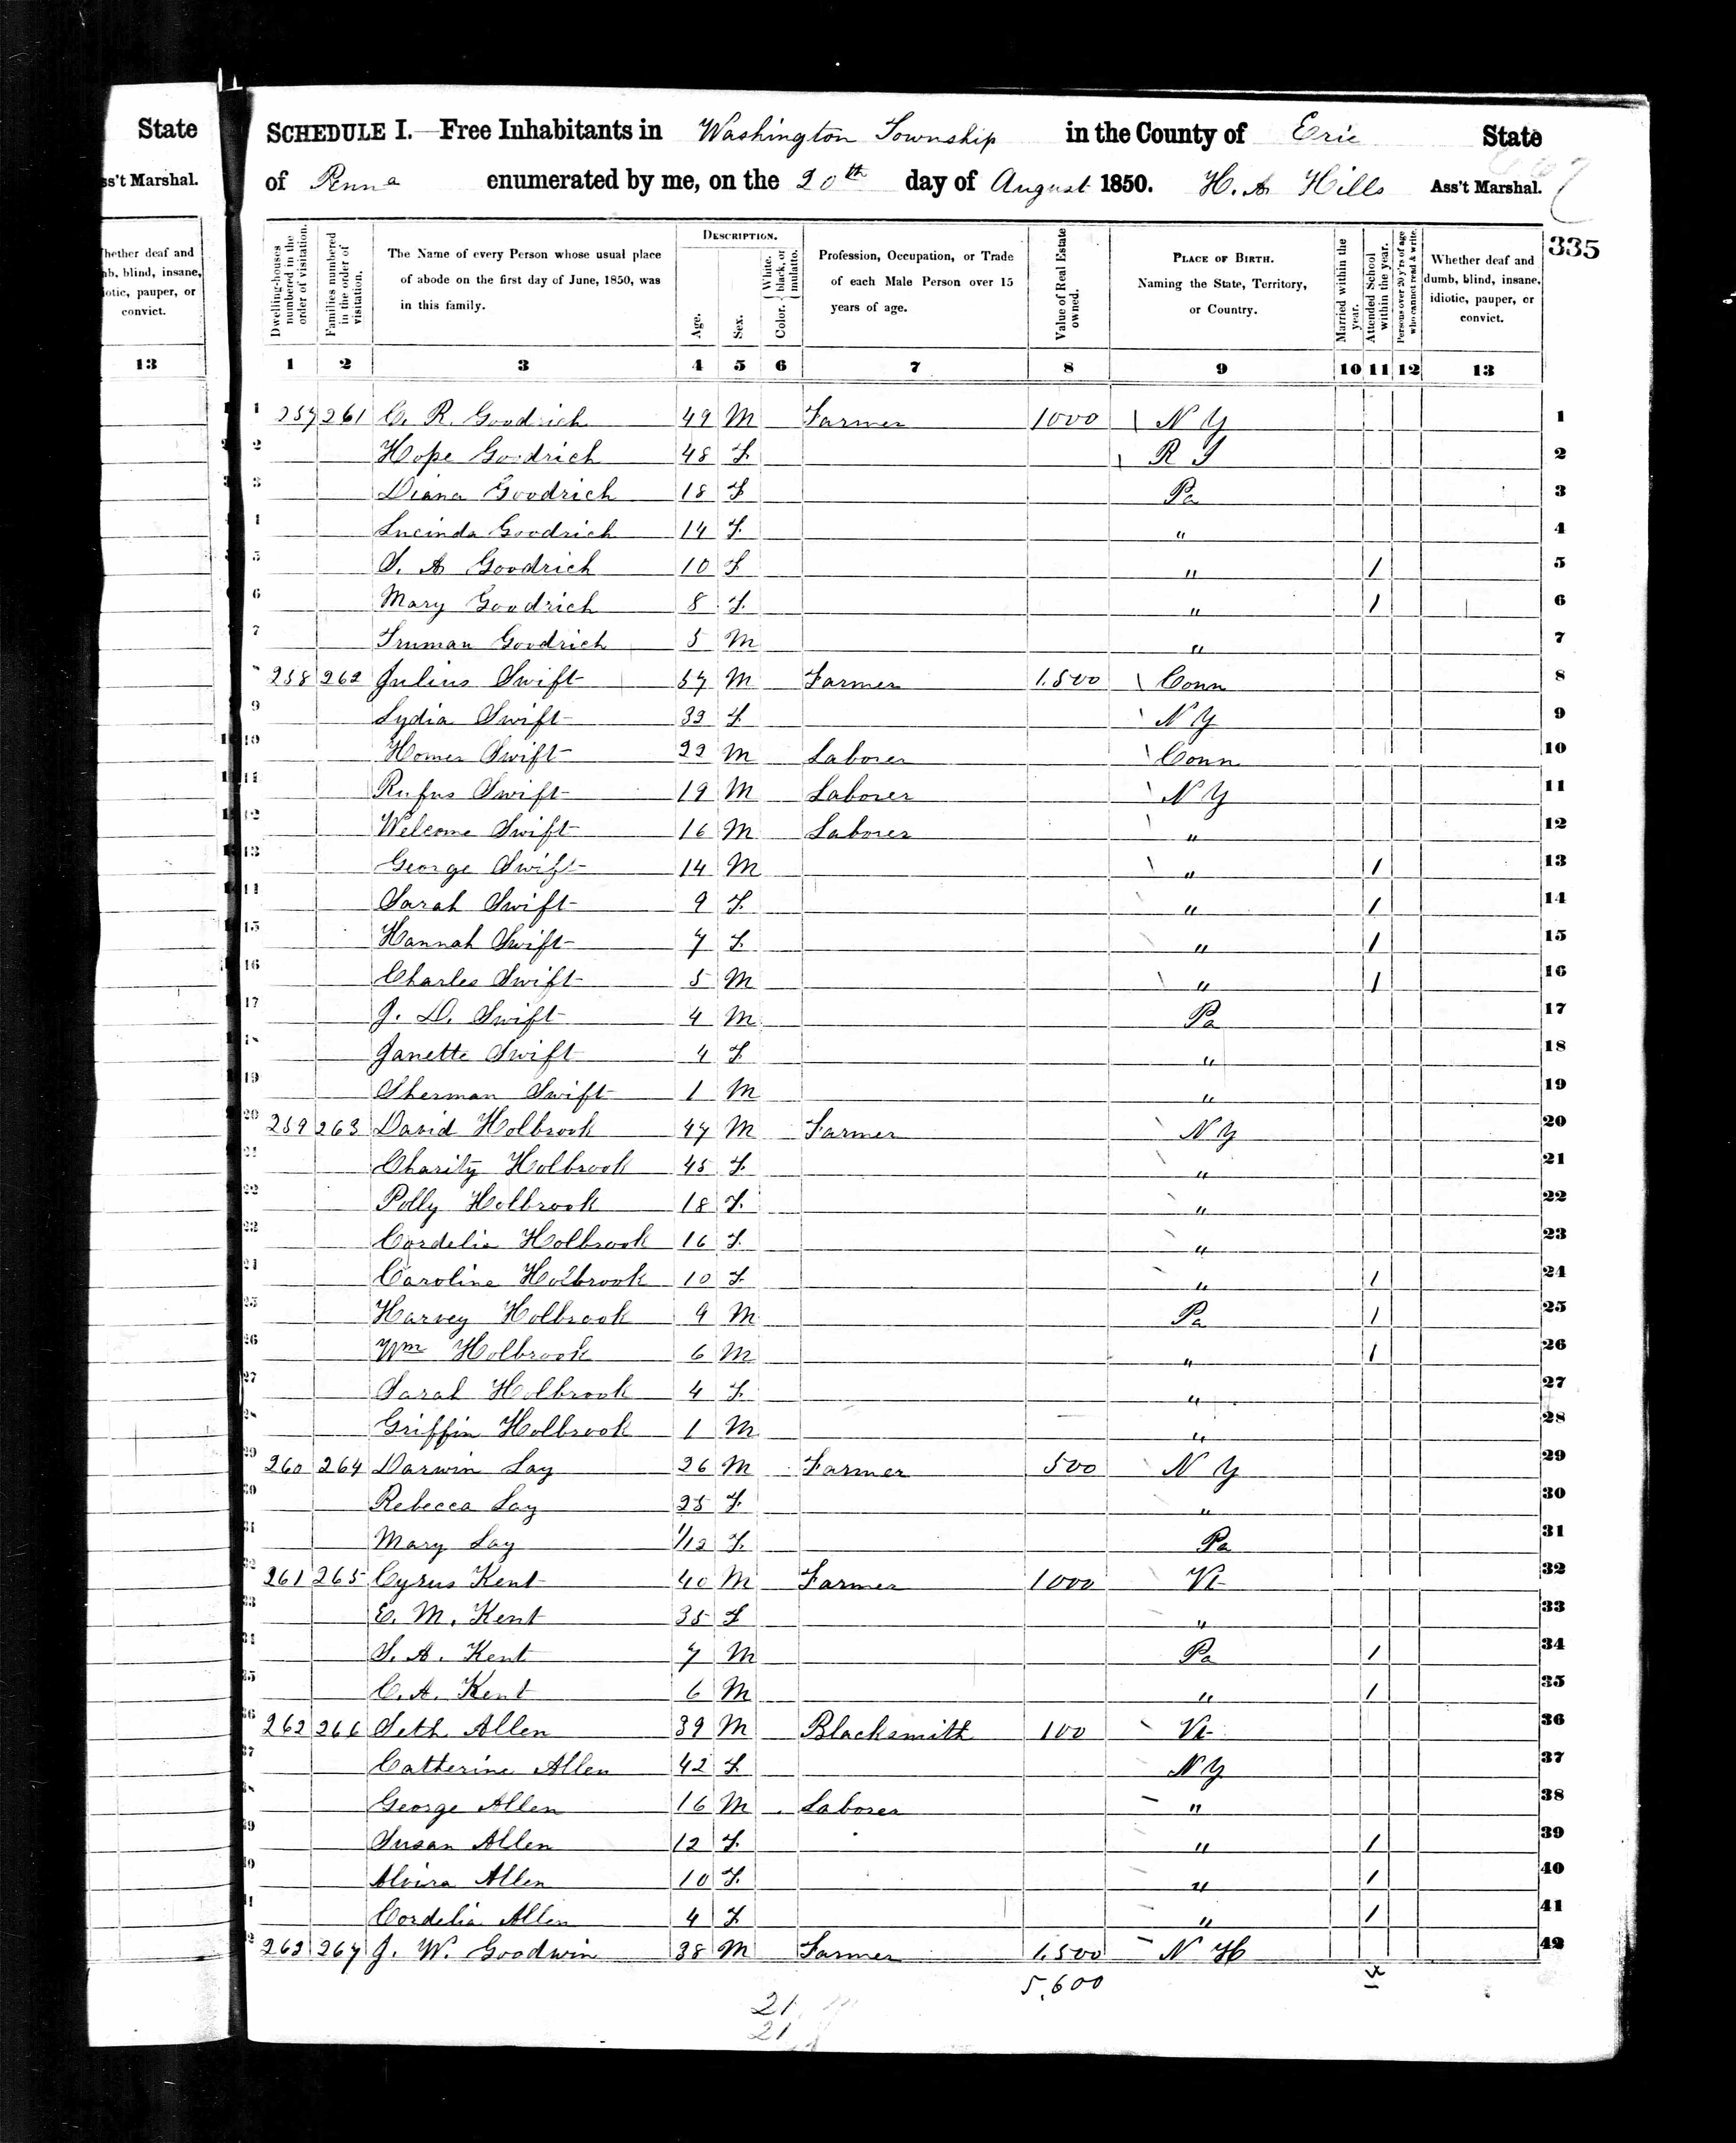 State
ss't Marshal.
hether deaf and
nb, blind, insane,
iotic, pauper, or
convict.
13
SCHEDULE I. Free Inhabitants in Washington Township in the County of Erie State
of Penna enumerated by me, on the 20th day of August 1850. H. A. Hills Ass't Marshal.
335
Dwelling-houses numbered in the order of visitation.
Families numbered in the order of visitation.
The Name of every Person whose usual place of abode on the first day of June, 1850, was in this family.
DESCRIPTION.
Age.
Sex.
Color, White, black, or mulatto.
Profession, Occupation, or Trade of each Male Person over 15 years of age.
Value of Real Estate owned.
PLACE OF BIRTH.
Naming the State, Territory, or Country.
Married within the year.
Attended School within the year.
Persons over 20 y'rs of age who cannot read & write.
Whether deaf and dumb, blind, insane, idiotic, pauper, or convict.
1 2 3 4 5 6 7 8 9 10 11 12 13
1 257 261 C. R. Goodrich 49 M Farmer 1000 N Y 1
2 Hope Goodrich 48 F R I 2
3 Diana Goodrich 18 F Pa 3
4 Lucinda Goodrich 14 F " 4
5 S. A Goodrich 10 F " 1 5
6 Mary Goodrich 8 F " 1 6
7 Truman Goodrich 5 M " 7
258 262 Julius Swift 57 M Farmer 1.500 Conn 8
9 Lydia Swift 39 F N Y 9
10 Homer Swift 22 M Laborer Conn 10
11 Rufus Swift 19 M Laborer N Y 11
12 Welcome Swift 16 M Laborer " 12
13 George Swift 14 M " 1 13
14 Sarah Swift 9 F " 1 14
15 Hannah Swift 7 F " 1 15
16 Charles Swift 5 M " 1 16
17 J. D. Swift 4 M Pa 17
Janette Swift 4 F " 18
19 Sherman Swift 1 M " 19
20 259 263 David Holbrook 47 M Farmer N Y 20
21 Charity Holbrook 45 F " 21
22 Polly Holbrook 18 F " 22
23 Cordelia Holbrook 16 F " 23
24 Caroline Holbrook 10 F " 1 24
25 Harvey Holbrook 9 M Pa 1 25
26 Wm Holbrook 6 M " 1 26
27 Sarah Holbrook 4 F " 27
Griffin Holbrook 1 M " 28
29 260 264 Darwin Lay 26 M Farmer 500 N Y 29
30 Rebecca Lay 25 F " 30
31 Mary Lay 1/12 F Pa 31
32 261 265 Cyrus Kent 40 M Farmer 1000 Vt 32
33 E. M. Kent 35 F " 33
34 S. A. Kent 7 M Pa 1 34
35 C. A. Kent 6 M " 1 35
36 262 266 Seth Allen 39 M Blacksmith 100 Vt 36
37 Catherine Allen 42 F N Y 37
George Allen 16 M Laborer " 38
39 Susan Allen 12 F " 1 39
Alvira Allen 10 F " 1 40
Cordelia Allen 4 F " 1 41
263 267 J. W. Goodwin 38 M Farmer 1.500 N H 42
5.600
21
21